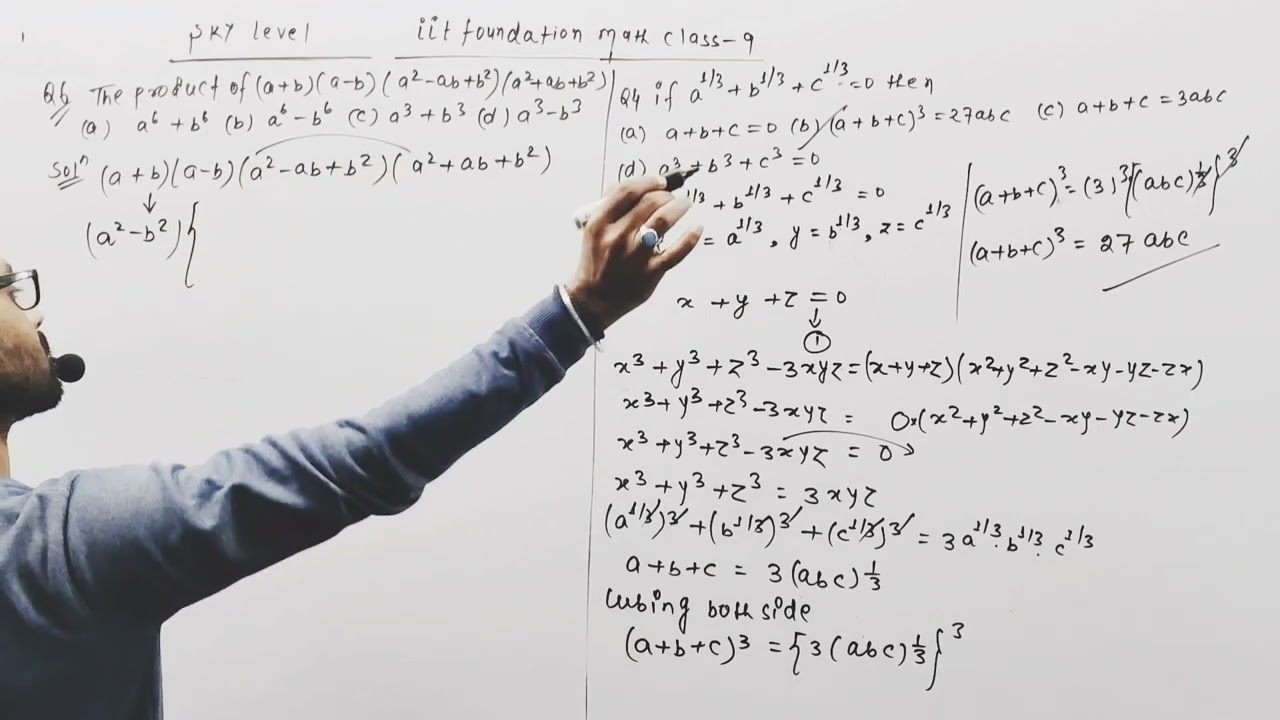 SKY level iit foundation math class-9
Q6 The product of (a+b)(a-b)(a²-ab+b²)(a²+ab+b²)
(a) a⁶+b⁶ (b) a⁶-b⁶ (c) a³+b³ (d) a³-b³
Solⁿ (a+b)(a-b)(a²-ab+b²)(a²+ab+b²)
↓
(a²-b²){
Q4 if a^1/3+b^1/3+c^1/3=0 then
(a) a+b+c=0 (b) (a+b+c)³=27abc (c) a+b+c=3abc
(d) a³+b³+c³=0
^1/3+b^1/3+c^1/3=0
=a^1/3, y=b^1/3, z=c^1/3
x+y+z=0
↓
①
x³+y³+z³-3xyz=(x+y+z)(x²+y²+z²-xy-yz-zx)
x³+y³+z³-3xyz= 0×(x²+y²+z²-xy-yz-zx)
x³+y³+z³-3xyz=0
x³+y³+z³=3xyz
(a^1/3)³+(b^1/3)³+(c^1/3)³=3a^1/3.b^1/3.c^1/3
a+b+c=3(abc)^1/3
Cubing both side
(a+b+c)³={3(abc)^1/3}³
(a+b+c)³=(3)³{(abc)^1/3}³
(a+b+c)³=27abc